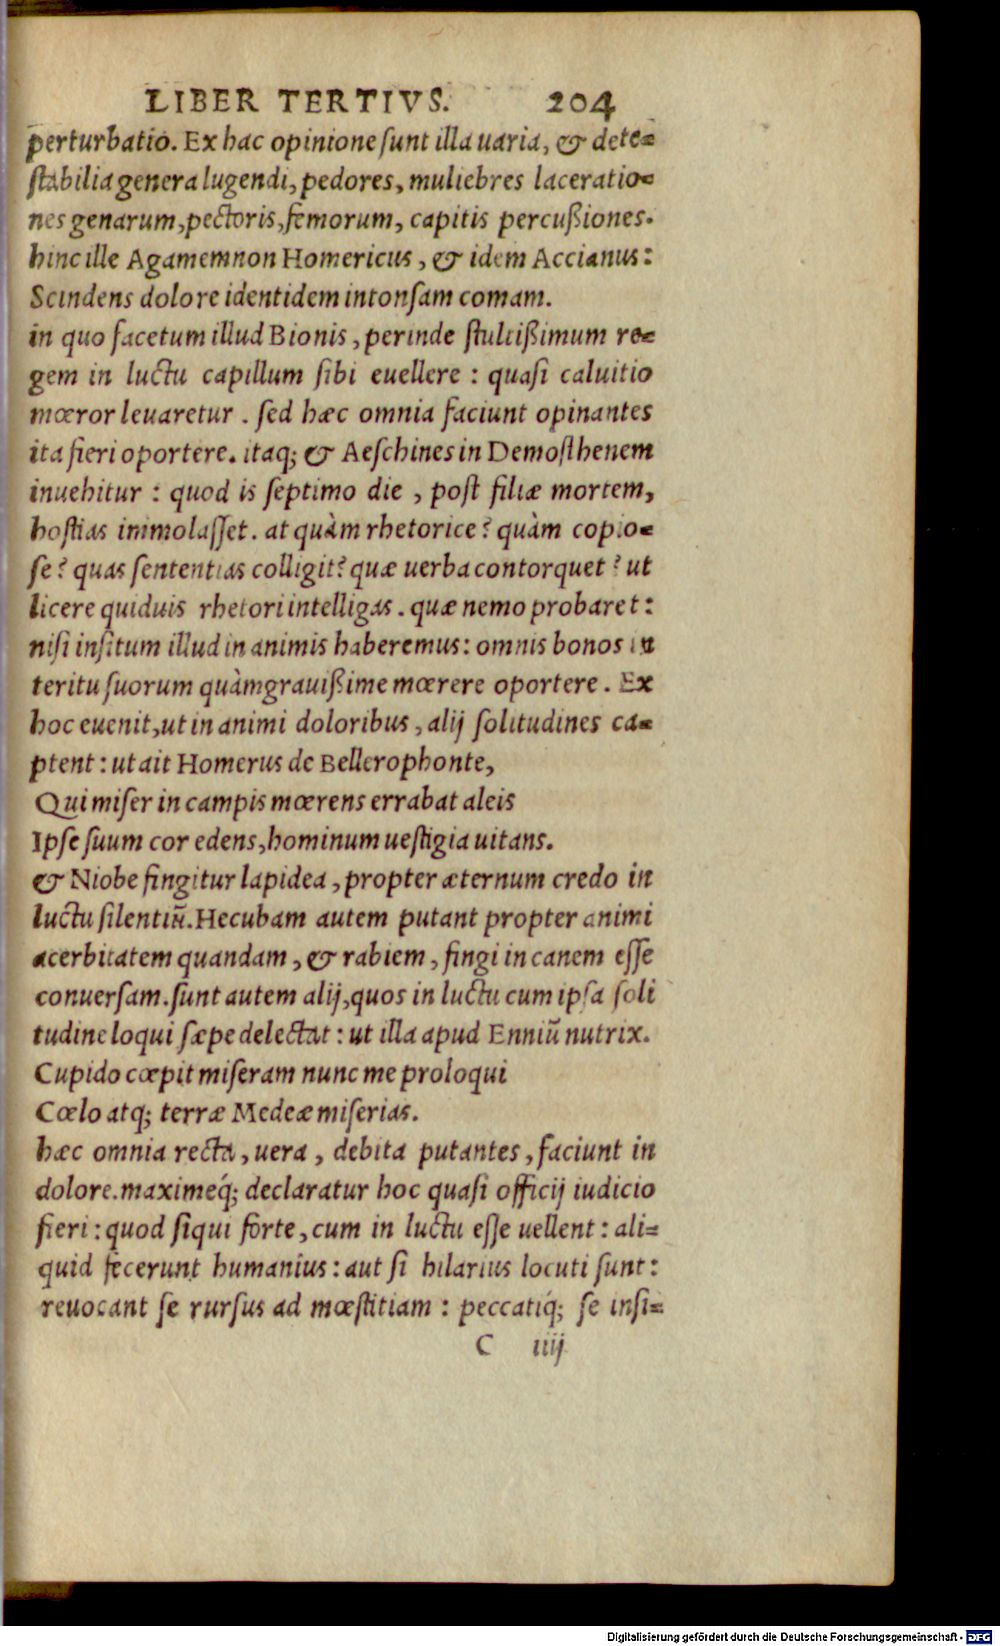 LIBER TERTIVS. 204
perturbatio. Ex hac opinione sunt illa uaria, & dete-
stabilia genera lugendi, pedores, muliebres laceratio-
nes genarum, pectoris, femorum, capitis percußiones.
hinc ille Agamemnon Homericus, & idem Accianus:
Scindens dolore identidem intonsam comam.
in quo facetum illud Bionis, perinde stultißimum re-
gem in luctu capillum sibi euellere : quasi caluitio
mœror leuaretur . sed hæc omnia faciunt opinantes
ita fieri oportere. itaq; & Aeschines in Demosthenem
inuehitur : quod is septimo die , post filiæ mortem,
hostias immolasset. at quàm rhetorice? quàm copio-
se? quas sententias colligit? quæ uerba contorquet? ut
licere quiduis rhetori intelligas. quæ nemo probaret:
nisi insitum illud in animis haberemus: omnis bonos in
teritu suorum quàmgrauißime mœrere oportere. Ex
hoc euenit, ut in animi doloribus, alij solitudines ca-
ptent: ut ait Homerus de Bellerophonte,
Qui miser in campis mœrens errabat aleis
Ipse suum cor edens, hominum uestigia uitans.
& Niobe fingitur lapidea, propter æternum credo in
luctu silentiũ. Hecubam autem putant propter animi
acerbitatem quandam, & rabiem, fingi in canem esse
conuersam. sunt autem alij, quos in luctu cum ipsa soli
tudine loqui sæpe delectat: ut illa apud Enniũ nutrix.
Cupido cœpit miseram nunc me proloqui
Cœlo atq; terræ Medeæ miserias.
hæc omnia recta, uera, debita putantes, faciunt in
dolore. maximeq́; declaratur hoc quasi officij iudicio
fieri: quod siqui forte, cum in luctu esse uellent: ali-
quid fecerunt humanius: aut si hilarius locuti sunt:
reuocant se rursus ad mœstitiam : peccatiq́; se insi-
C iiij
Digitalisierung gefördert durch die Deutsche Forschungsgemeinschaft - DFG